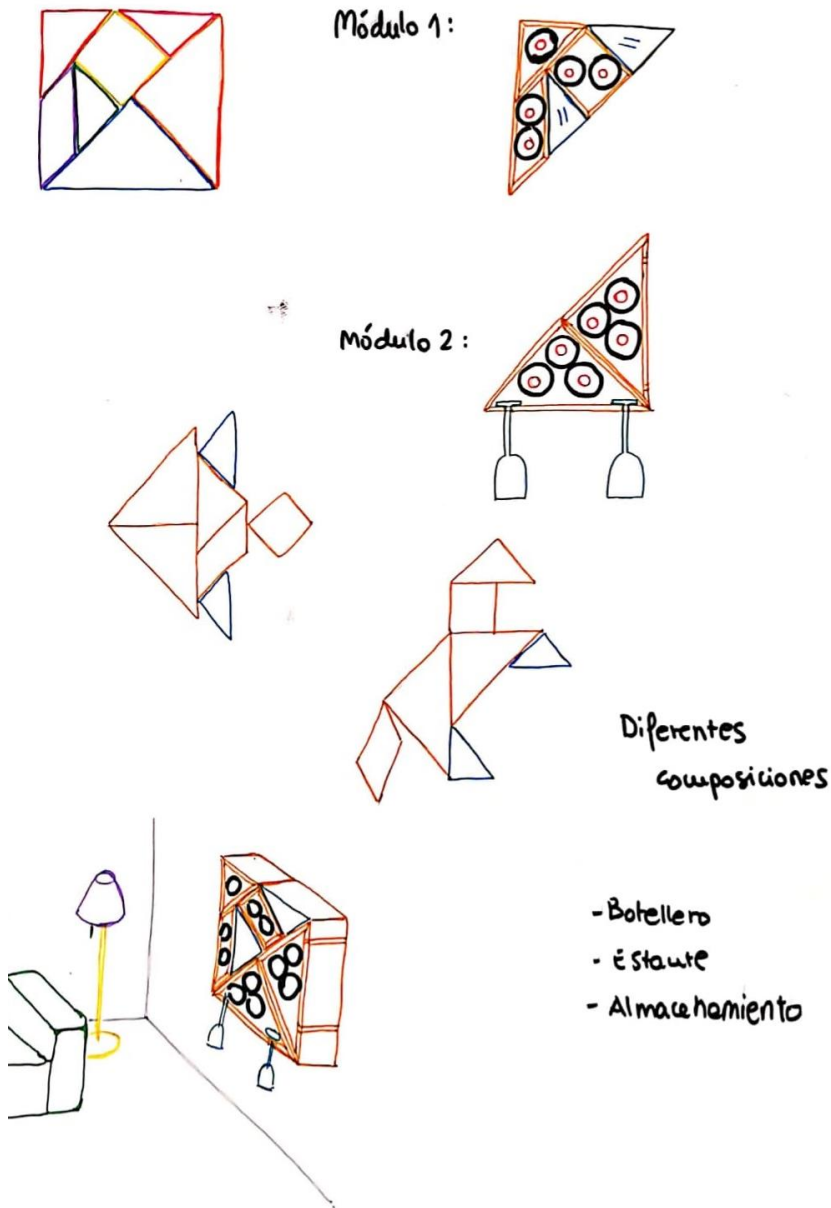 Módulo 1:
Módulo 2:
Diferentes
composiciones
- Botellero
- Estante
- Almacenamiento